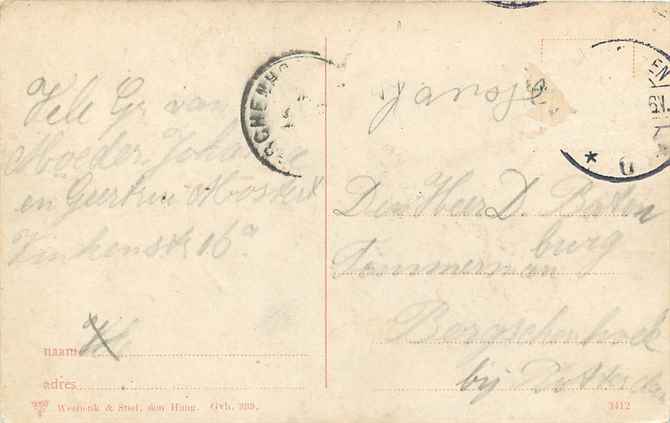 Vele Gr. van
Moeder, Johanna
en Geertrui Mostert
16a
Jansje
Den Heer D. Baten
burg
Timmerman
Bergschenhoek
bij Rotterdam
naam
adres
Weenenk & Snel, den Haag. Gvh. 389.
3412